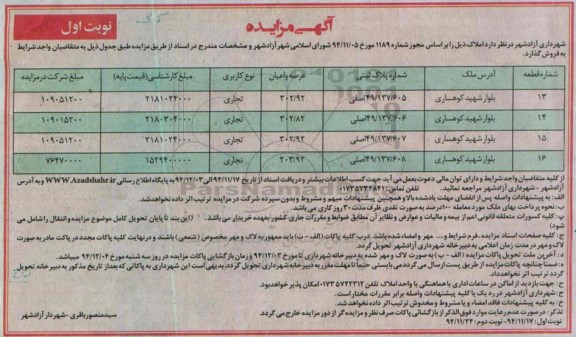 نوبت اول
آگهی مزایده
شهرداری آزادشهر در نظر دارد املاک ذیل را بر اساس مجوز شماره ۱۱۸۹ مورخ ۹۴/۱۱/۰۵ شورای اسلامی شهر آزادشهر و مشخصات مندرج در اسناد از طریق مزایده طبق جدول ذیل به متقاضیان واجد شرایط
به فروش گذارد.
شماره قطعه آدرس ملک شماره پلاک ثبتی عرصه واعیان نوع کاربری مبلغ کارشناسی (قیمت پایه) مبلغ شرکت در مزایده
۱۳ بلوار شهید کوهساری ۴۹/۱۳۷/۶۰۵ اصلی ۳۰۲/۹۲ تجاری ۲۱۸۱۰۲۴۰۰۰ ۱۰۹۰۵۱۲۰۰
۱۴ بلوار شهید کوهساری ۴۹/۱۳۷/۶۰۶ اصلی ۳۰۲/۸۲ تجاری ۲۱۸۰۳۰۴۰۰۰ ۱۰۹۰۱۵۲۰۰
۱۵ بلوار شهید کوهساری ۴۹/۱۳۷/۶۰۷ اصلی ۳۰۲/۹۲ تجاری ۲۱۸۱۰۲۴۰۰۰ ۱۰۹۰۵۱۲۰۰
۱۶ بلوار شهید کوهساری ۴۹/۱۳۷/۶۰۸ اصلی ۲۰۳/۹۲ تجاری ۱۵۲۹۴۰۰۰۰۰ ۷۶۴۷۰۰۰۰
از کلیه متقاضیان واجد شرایط و دارای توان مالی دعوت بعمل می آید جهت کسب اطلاعات بیشتر و دریافت اسناد از تاریخ ۹۴/۱۱/۱۷ الی ۹۴/۱۲/۰۳ به پایگاه اطلاع رسانی WWW.Azadshahr.ir و به آدرس
آزادشهر - شهرداری آزادشهر مراجعه نمائید. تلفن تماس: ۰۱۷۳۵۷۲۶۸۴۱
الف: به پیشنهادات واصله پس از انقضای مهلت یاد شده بالا و همچنین پیشنهادات مبهم و مشروط و بدون سپرده شرکت در مزایده ترتیب اثر داده نخواهد شد.
ب: نحوه پرداخت بهای ملک مورد معامله ۱۰۰ درصد به صورت نقدی ظرف مدت ۳۰ روز کاری می باشد.
پ: کلیه کسورات متعلقه قانونی اعم از بیمه و مالیات و عوارض و نظایر آن مطابق ضوابط و مقررات جاری کشور بعهده خریدار می باشد. (این بند تا پایان تحویل کامل موضوع مزایده و انتقال را شامل می
شود)
ج: کلیه صفحات اسناد مزایده، فرم شرایط و... مهر و امضاء شده باشد. درب کلیه پاکات (الف - ب) باید ممهور به لاک و مهر مخصوص (شمعی) باشند و در نهایت کلیه پاکات مجدد در پاکت مادر به صورت
لاک و مهر در مدت زمان اعلامی به دبیرخانه شهرداری آزادشهر تحویل گردد.
د: آخرین مهلت تحویل پاکات مزایده (الف - ب) به صورت لاک و مهر شده به دبیرخانه شهرداری تا مورخ ۹۴/۱۲/۰۳ و زمان بازگشایی پاکات مزایده در روز سه شنبه مورخ ۹۴/۱۲/۰۴ میباشد.
ه: ضمنا چنانچه پاکات مزایده از طریق پست ارسال می گردد می بایستی حتما تا مهلت مقرر به دبیرخانه شهرداری تحویل گردد، بدیهی است این شهرداری به پاکاتی که بعد از تاریخ مذکور به دبیرخانه تحویل
گردد ترتیب اثر نخواهد داد.
ح: جهت بازدید از اماکن در ساعات اداری با هماهنگی با واحد املاک تلفن ۰۱۷۳۵۷۲۲۳۱۲ امکان پذیر خواهد بود.
چ: شهرداری آزادشهر در رد یک یا کلیه پیشنهادات واصله برابر مقررات مختار است.
خ: به پیشنهادات فاقد امضاء و یا مشروط و مخدوش ترتیب اثر داده نخواهد شد.
تذکر: در صورت عدم رعایت موارد فوق الذکر از بازگشائی پاکات صرف نظر و مزایده گر از دور مزایده خارج می گردد.
نوبت اول: ۹۴/۱۱/۱۷ - نوبت دوم: ۹۴/۱۱/۲۴
سید منصور باقری - شهردار آزادشهر